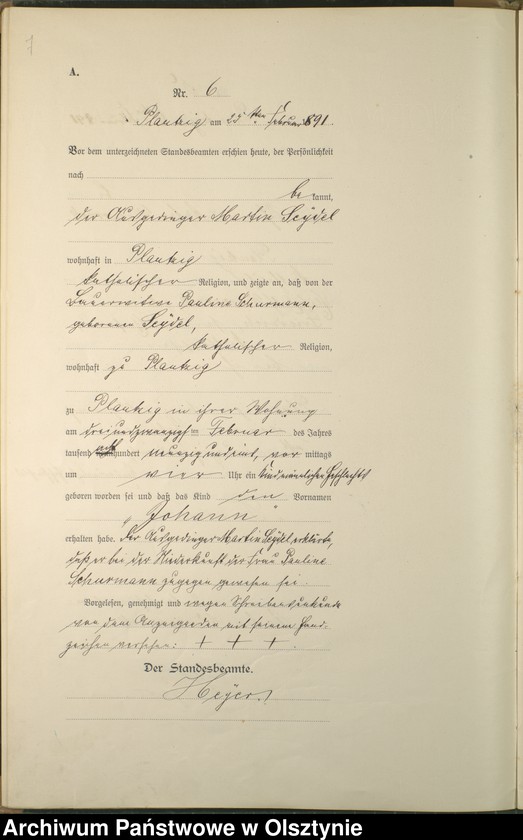 7
A.
Nr. 6
Plautzig am 25ten Februar 1891.
Vor dem unterzeichneten Standesbeamten erschien heute, der Persönlichkeit
nach
bekannt,
der Altsitzer Martin Seydel
wohnhaft in Plautzig
katholischer Religion, und zeigte an, daß von der
Bauerwitwe Pauline Schurmann,
geborenen Seydel,
katholischer Religion,
wohnhaft zu Plautzig
zu Plautzig in ihrer Wohnung
am dreiundzwanzigsten Februar des Jahres
tausend acht hundert neunzig und eins, vor mittags
um vier Uhr ein Kind männlichen Geschlechts
geboren worden sei und daß das Kind den Vornamen
„Johann“
erhalten habe. Der Martin Seydel erklärte,
daß er bei der Niederkunft der Frau Pauline
Schurmann zugegen gewesen sei.
Vorgelesen, genehmigt und wegen Schreibensunkunde
von dem Anzeigenden mit seinem Hand-
zeichen versehen: + + +.
Der Standesbeamte.
Heyer
Archiwum Państwowe w Olsztynie